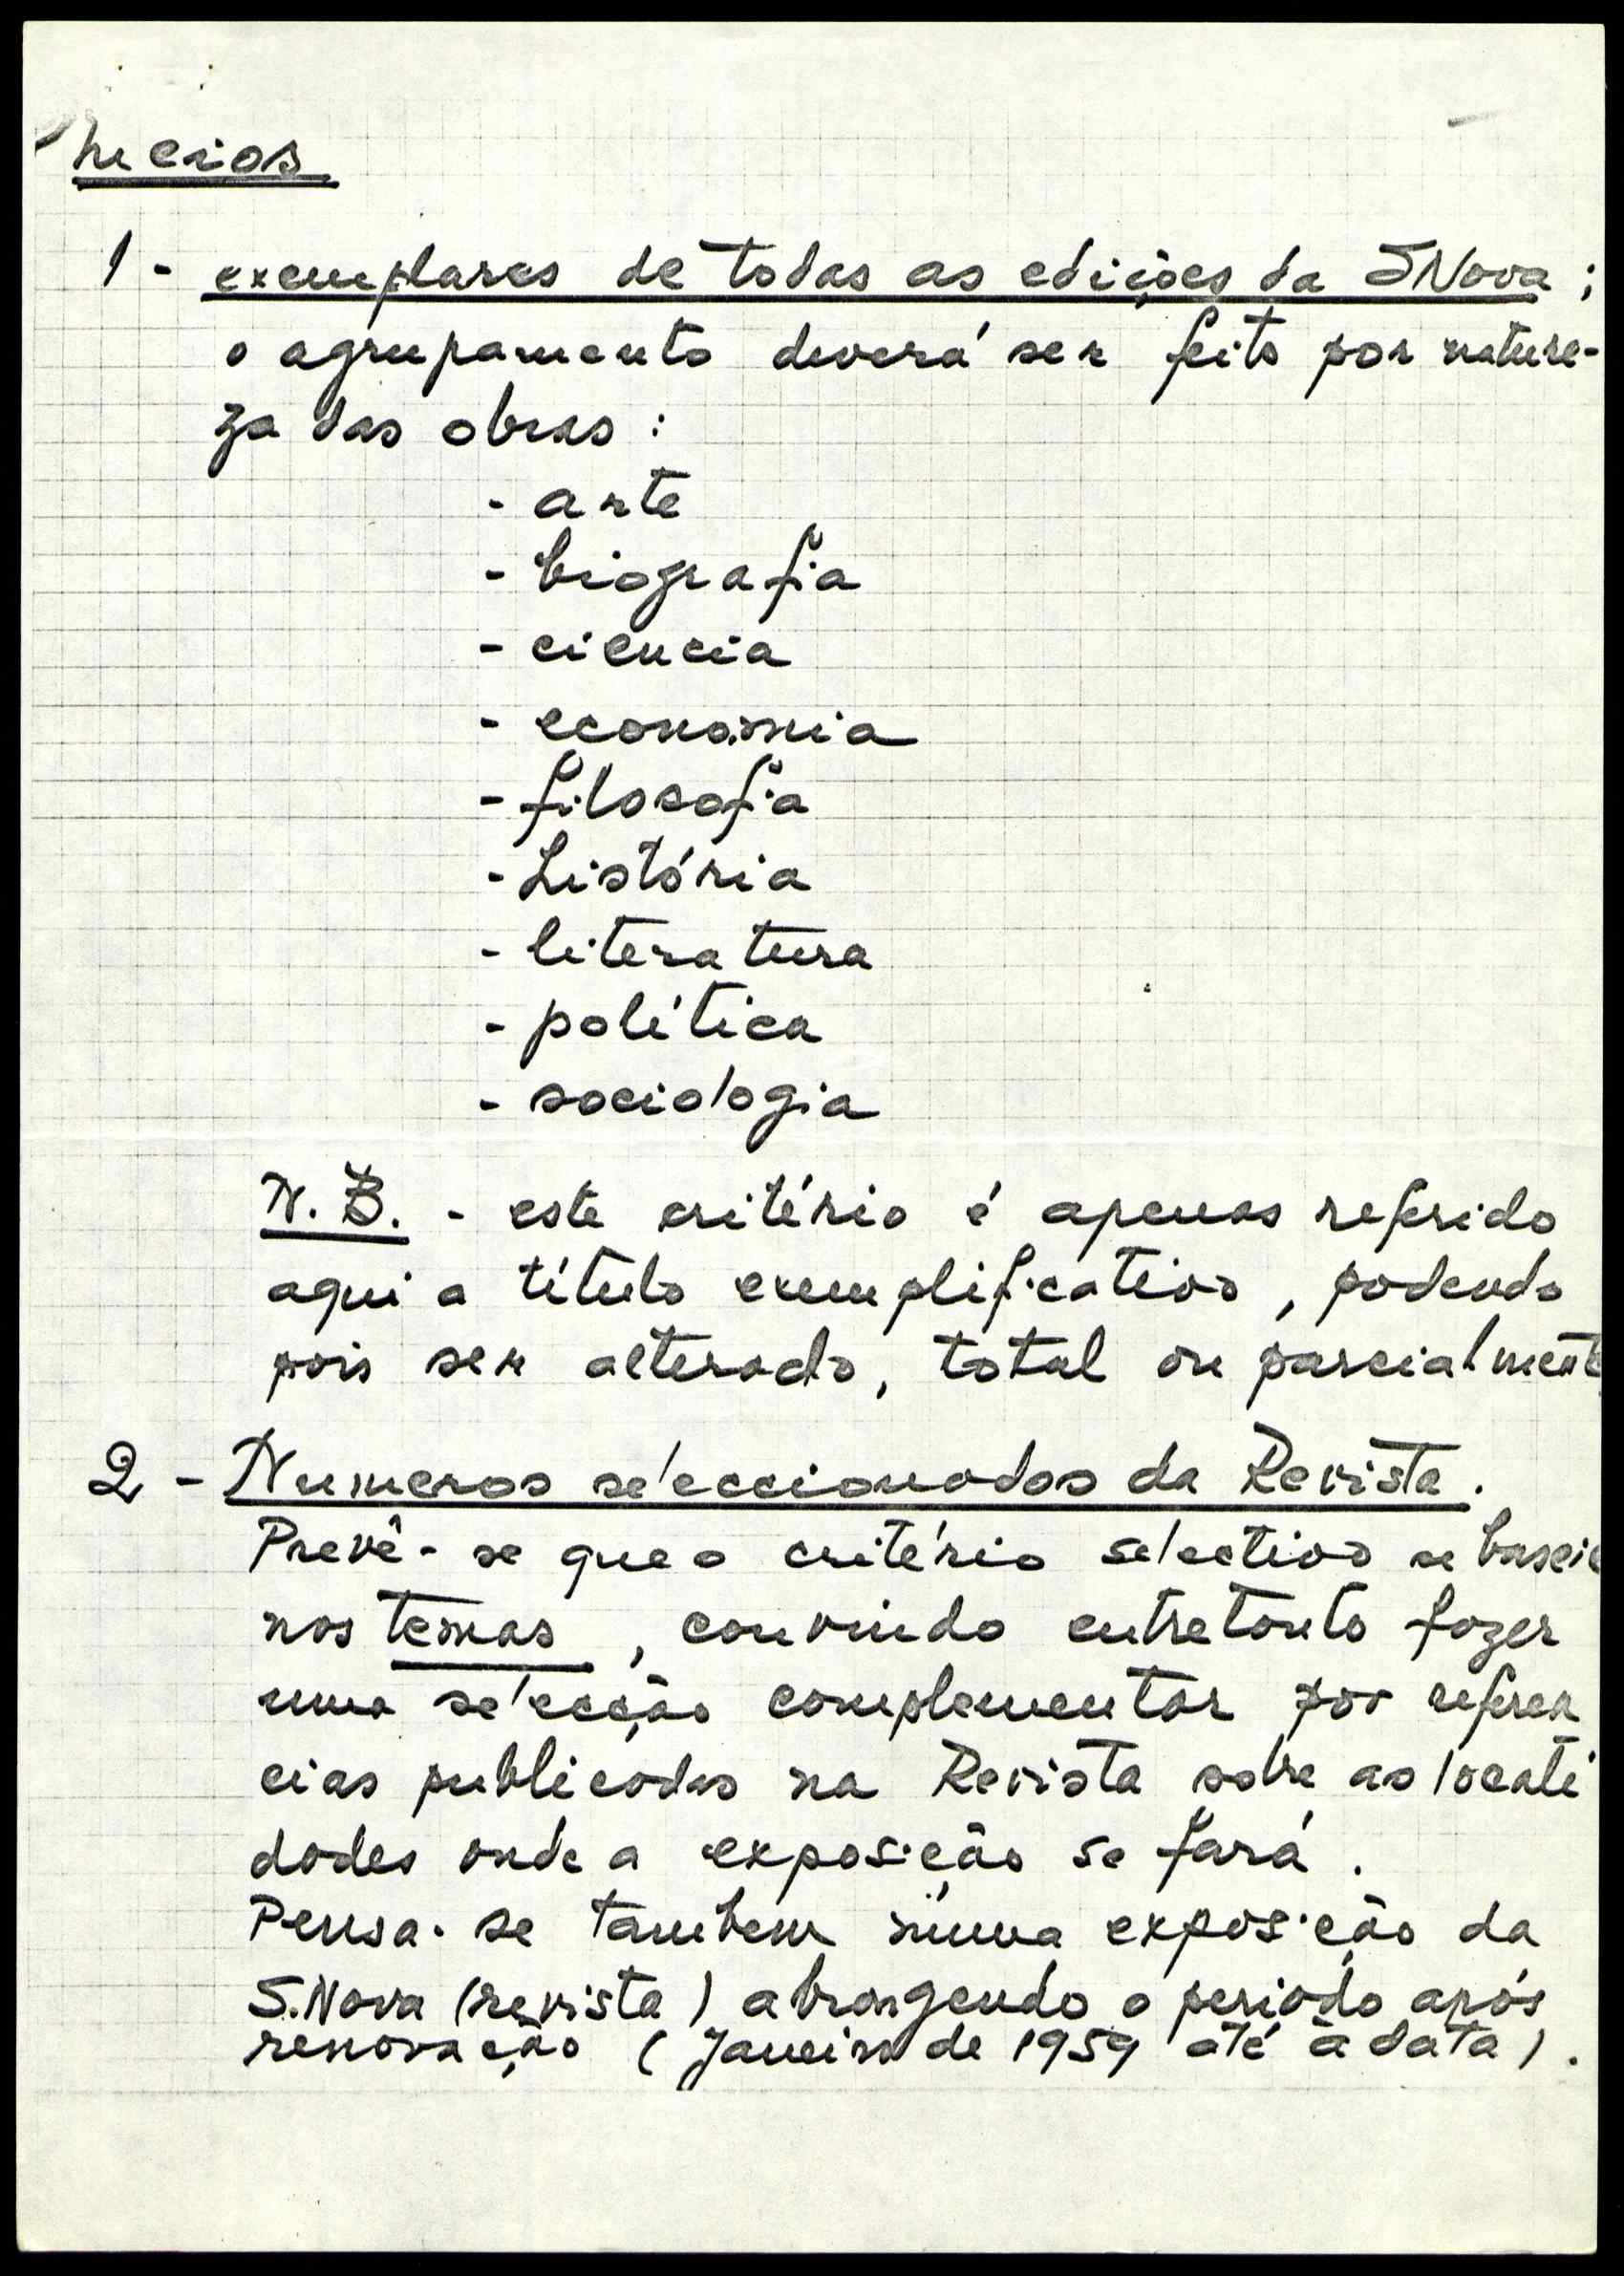 meios
1 - exemplares de todas as edições da SNova ;
o agrupamento deverá ser feito por nature-
za das obras :
- arte
- biografia
- ciencia
- economia
- filosofia
- história
- literatura
- política
- sociologia
N. B. - este critério é apenas referido
aqui a título exemplificativo , podendo
pois ser alterado, total ou parcialment
2 - Numeros seleccionados da Revista .
Prevê-se que o critério selectivo se baseie
nos temas , convindo entretanto fazer
uma selecção complementar por referen
cias publicadas na Revista sobre as locali
dades onde a exposição se fará .
Pensa-se tambem numa exposição da
S.Nova (revista) abrangendo o periodo após
renovação (Janeiro de 1959 até à data) .